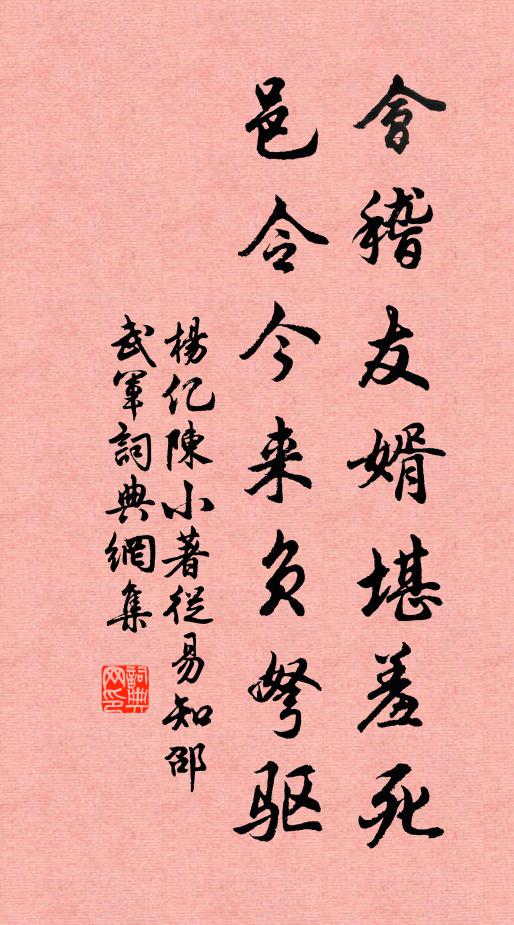 會稽友婿堪羞死
邑令今来負弩驱
楊亿陳小著從易知邵
武軍詞典網集
詞典
网印